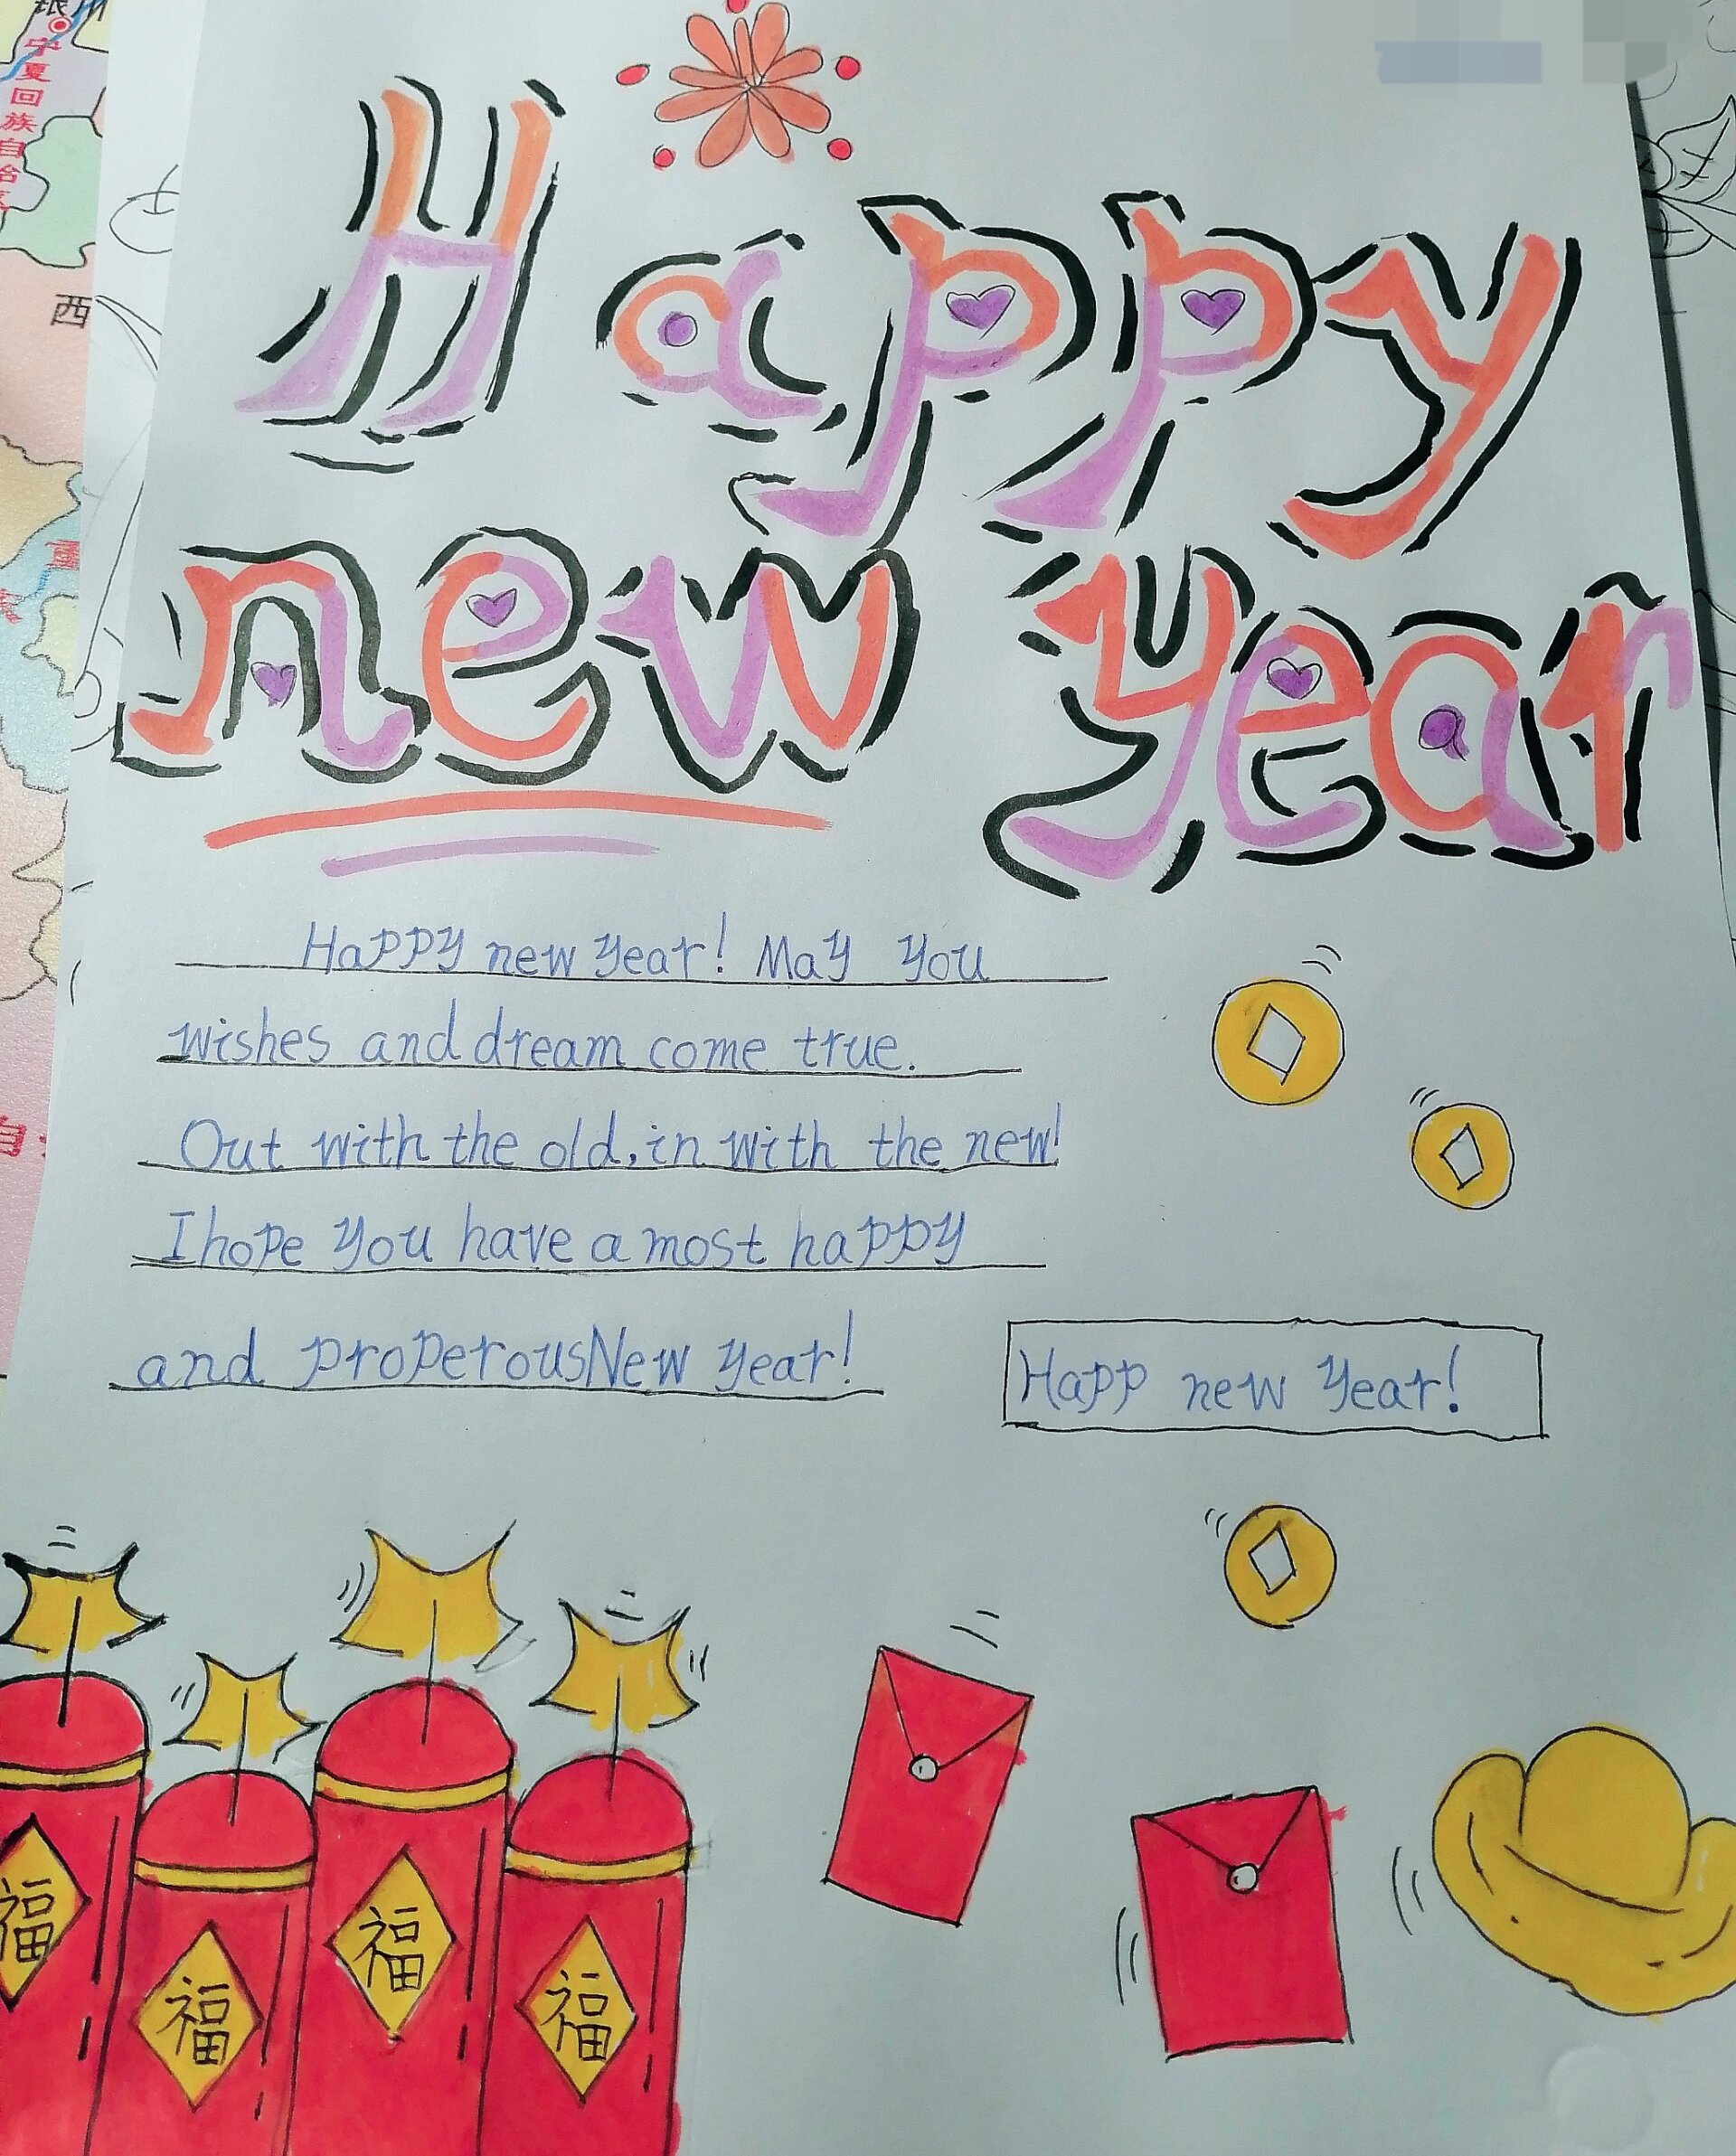 Happy
new year
Happy new year! May you
wishes and dream come true.
Out with the old, in with the new!
I hope you have a most happy
and properous New year!
Happ new year!
福
福
福
福
宁夏回族自治
西
重
自